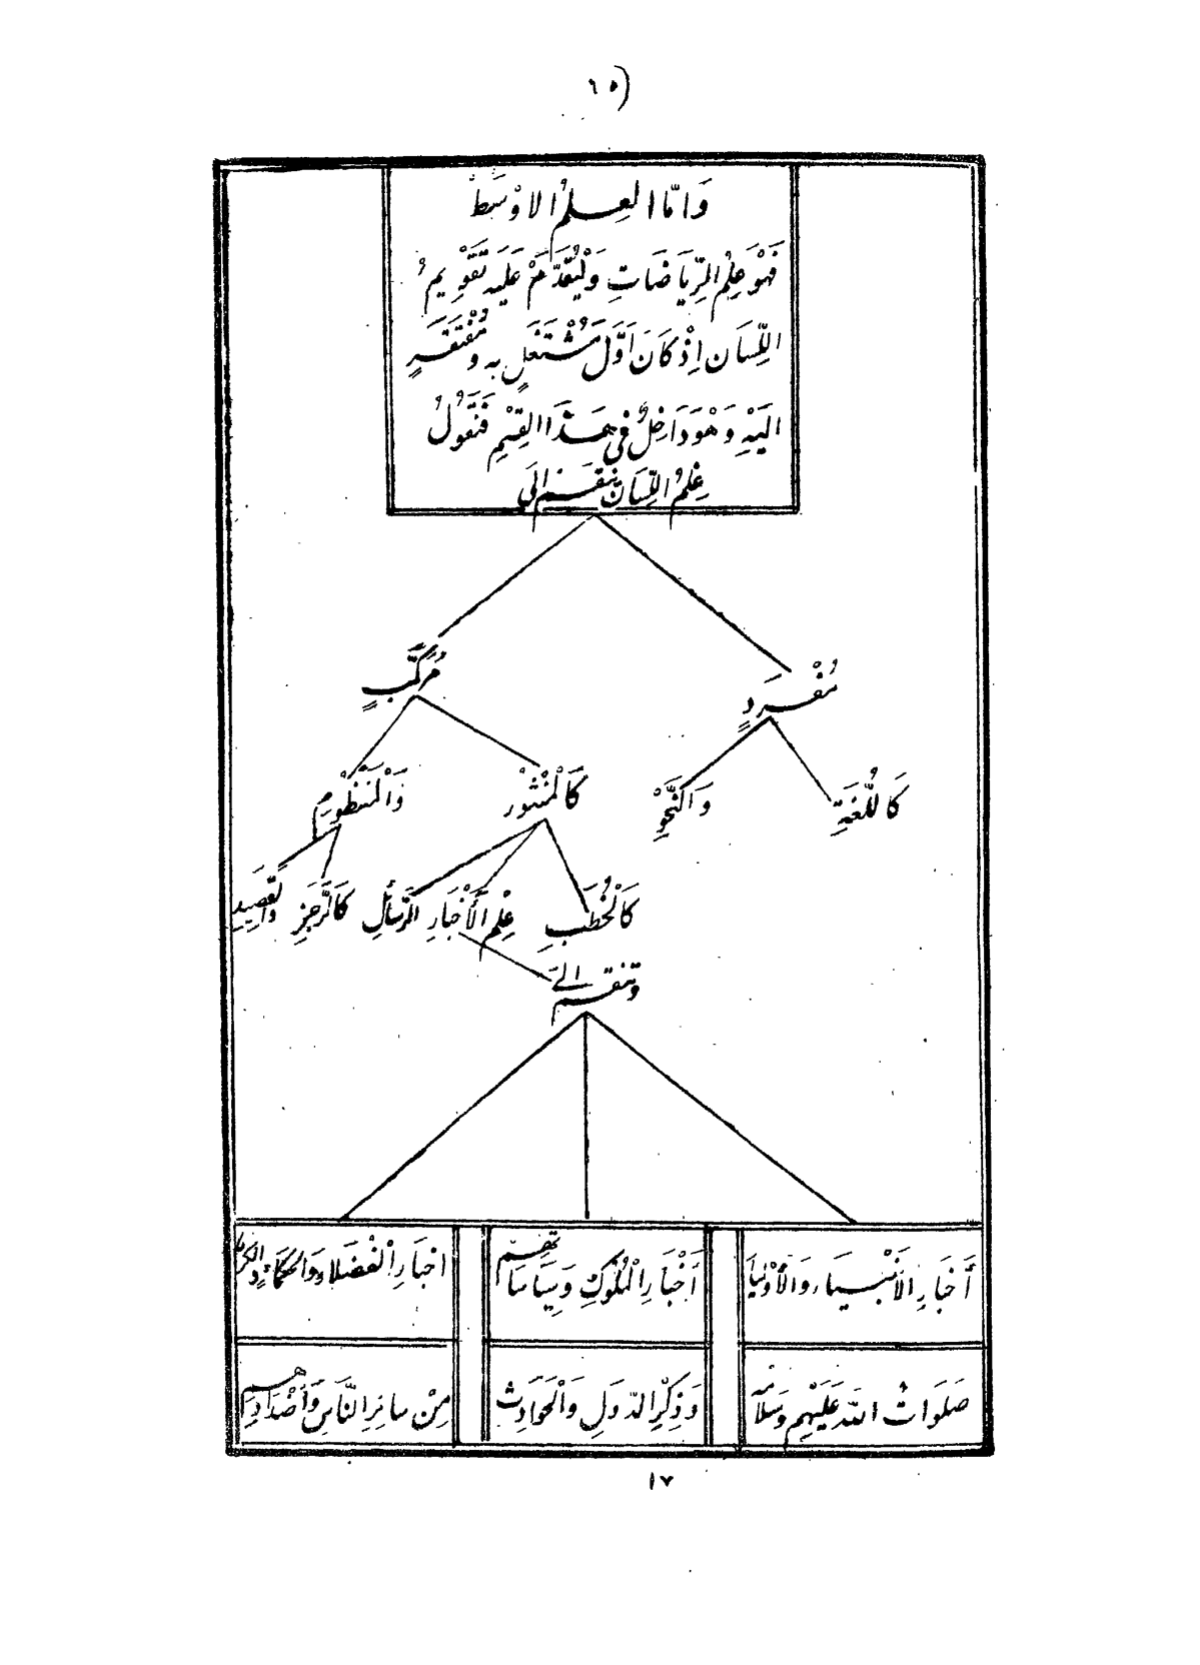 (٦٥
وَامَّا العِلمُ الاوْسَط
فَهْوَ عِلمُ الرِّيَاضَاتِ وَلْيُقَدَّمْ عَلَيه تَقْوِيمُ
اللِّسَان اِذْ كَانَ اَوَّلَ مُشْتَغَلٍ به وَمُفْتَقَرٍ
الَيْهِ وَهْوَ دَاخِلٌ فى هَذَا القِسْمِ فَنَقُولُ
عِلمُ اللِّسَان ينقسم الَى
مُفْرَدٍ
مُرَكَّبٍ
كَاللُّغَةِ
وَالنَّحْوِ
كَالْمَنْثُورْ
وَالْمَنْظُومِ
كَالْخُطَبِ
عِلْمِ الْأَخْبَارِ
الرَّسَائلِ
كَالرَّجَزِ
وَالقَصِيدِ
وتنقسم الَى
أَخبَارِ الأَنْبِيَاء وَالْأَوْلِيَا
صَلَوَاتُ اللّه عَلَيْهِم وَسَلَامه
أَخْبَارِ الْمُلوُكِ وَسِيَاسَاتهم
وَذِكْرِ الدوَلِ وَالْحَوَادِث
اخبَارِ الْفُضَلاء وَالحكَمَاء
مِنْ سائرِ النَّاسِ وَأَضْدَادِهِم
١٧